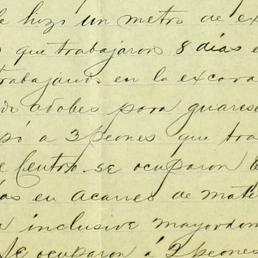 hizo un metro de ex
que trabajaron 8 dias e
trabajaron en la excava
adobes para guarese
pó a 3 peones que tra
Centro se ocuparon
as en acarreo de mate
inclusive mayordom
Se ocuparon á 2 peones